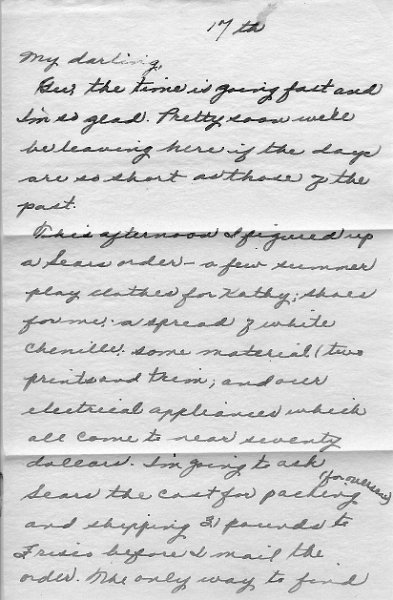 17th
My darling,
Gee, the time is going fast and
I'm so glad. Pretty soon we'll
be leaving here if the days
are so short as those of the
past.
This afternoon I figured up
a Sears order - a few summer
play clothes for Kathy; shoes
for me; a spread of white
chenille; some material (two
prints and trim; and our
electrical appliances which
all come to near seventy
dollars. I'm going to ask
(for overseas)
Sears the cost for packing
and shipping 31 pounds to
Frisco before I mail the
order. The only way to find